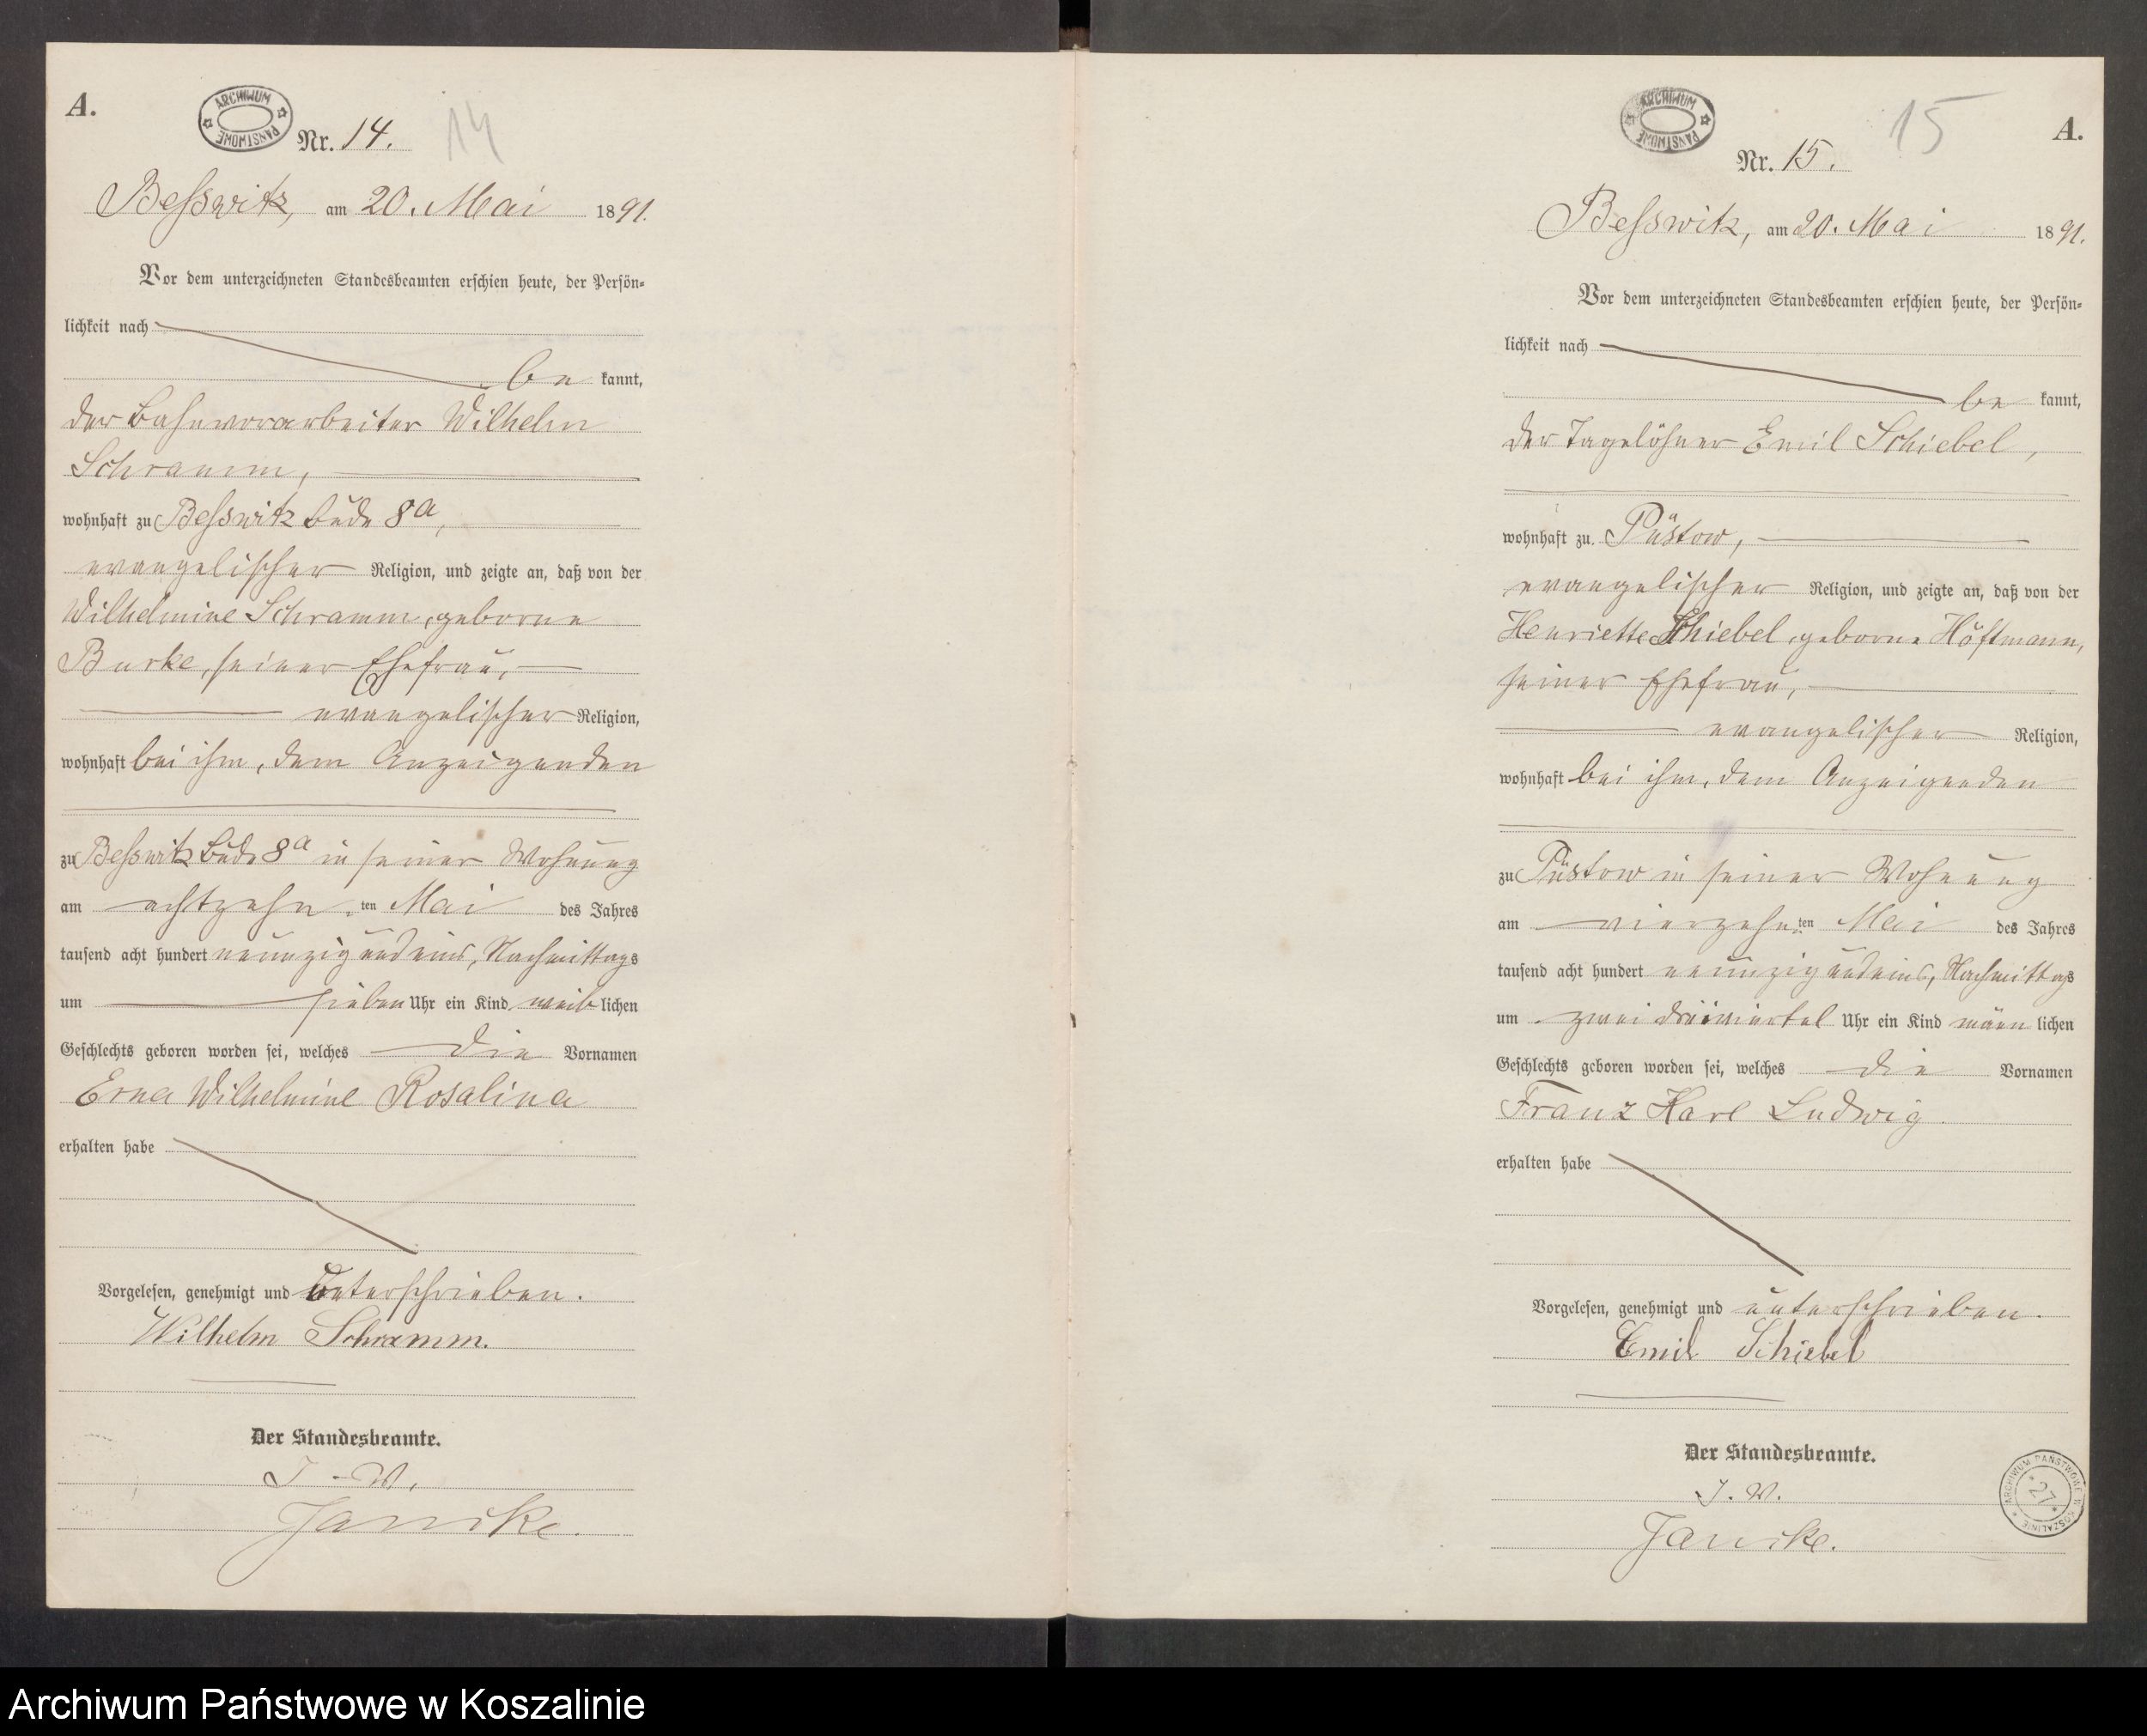 A.
ARCHIWUM PAŃSTWOWE
Nr. 14. 14
Besswitz, am 20. Mai 1891.
Vor dem unterzeichneten Standesbeamten erschien heute, der Persön-
lichkeit nach
be kannt,
der Bahnvorarbeiter Wilhelm
Schramm,
wohnhaft zu Besswitz Bude 8a,
evangelischer Religion, und zeigte an, daß von der
Wilhelmine Schramm, geborne
Burke, seiner Ehefrau,
evangelischer Religion,
wohnhaft bei ihm, dem Anzeigenden
zu Besswitz Bude 8a in seiner Wohnung
am achtzehn ten Mai des Jahres
tausend acht hundert neunzig und eins, Nachmittags
um sieben Uhr ein Kind weib lichen
Geschlechts geboren worden sei, welches die Vornamen
Erna Wilhelmine Rosalina
erhalten habe
Vorgelesen, genehmigt und unterschrieben.
Wilhelm Schramm.
Der Standesbeamte.
J. V.
Jancke.
A.
ARCHIWUM PAŃSTWOWE
15
Nr. 15.
Besswitz, am 20. Mai 1891.
Vor dem unterzeichneten Standesbeamten erschien heute, der Persön-
lichkeit nach
be kannt,
der Tagelöhner Emil Schiebel,
wohnhaft zu Püstow,
evangelischer Religion, und zeigte an, daß von der
Henriette Schiebel, geborne Höftmann,
seiner Ehefrau,
evangelischer Religion,
wohnhaft bei ihm, dem Anzeigenden
zu Püstow in seiner Wohnung
am vierzehn ten Mai des Jahres
tausend acht hundert neunzig und eins, Nachmittags
um zwei dreiviertel Uhr ein Kind männ lichen
Geschlechts geboren worden sei, welches die Vornamen
Franz Karl Ludwig
erhalten habe
Vorgelesen, genehmigt und unterschrieben.
Emil Schiebel
Der Standesbeamte.
J. V.
Jancke.
ARCHIWUM PAŃSTWOWE W KOSZALINIE
27
Archiwum Państwowe w Koszalinie